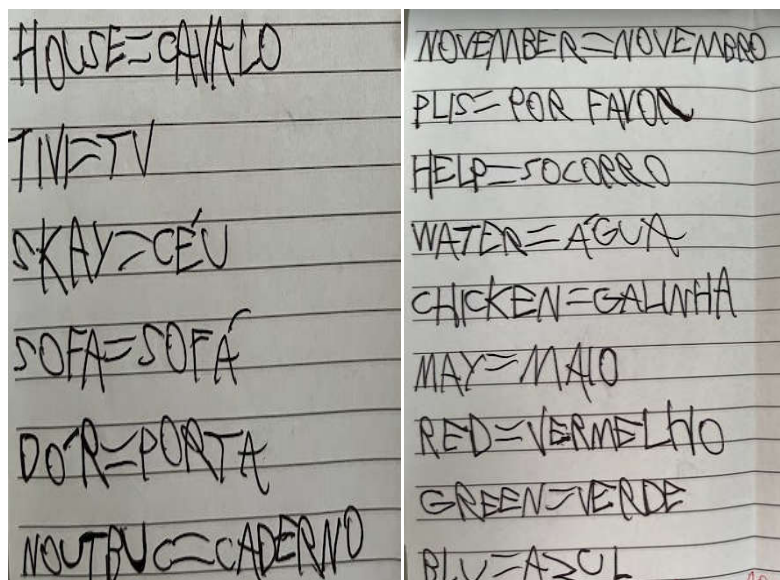 HOUSE=CAVALO
TIVI=TV
SKAY=CÉU
SOFA=SOFÁ
DÓR=PORTA
NOUTBUC=CADERNO
NOVEMBER=NOVEMBRO
PLIS=POR FAVOR
HELP=SOCORRO
WATER=ÁGUA
CHICKEN=GALINHA
MAY=MAIO
RED=VERMELHO
GREEN=VERDE
BLU=AZUL